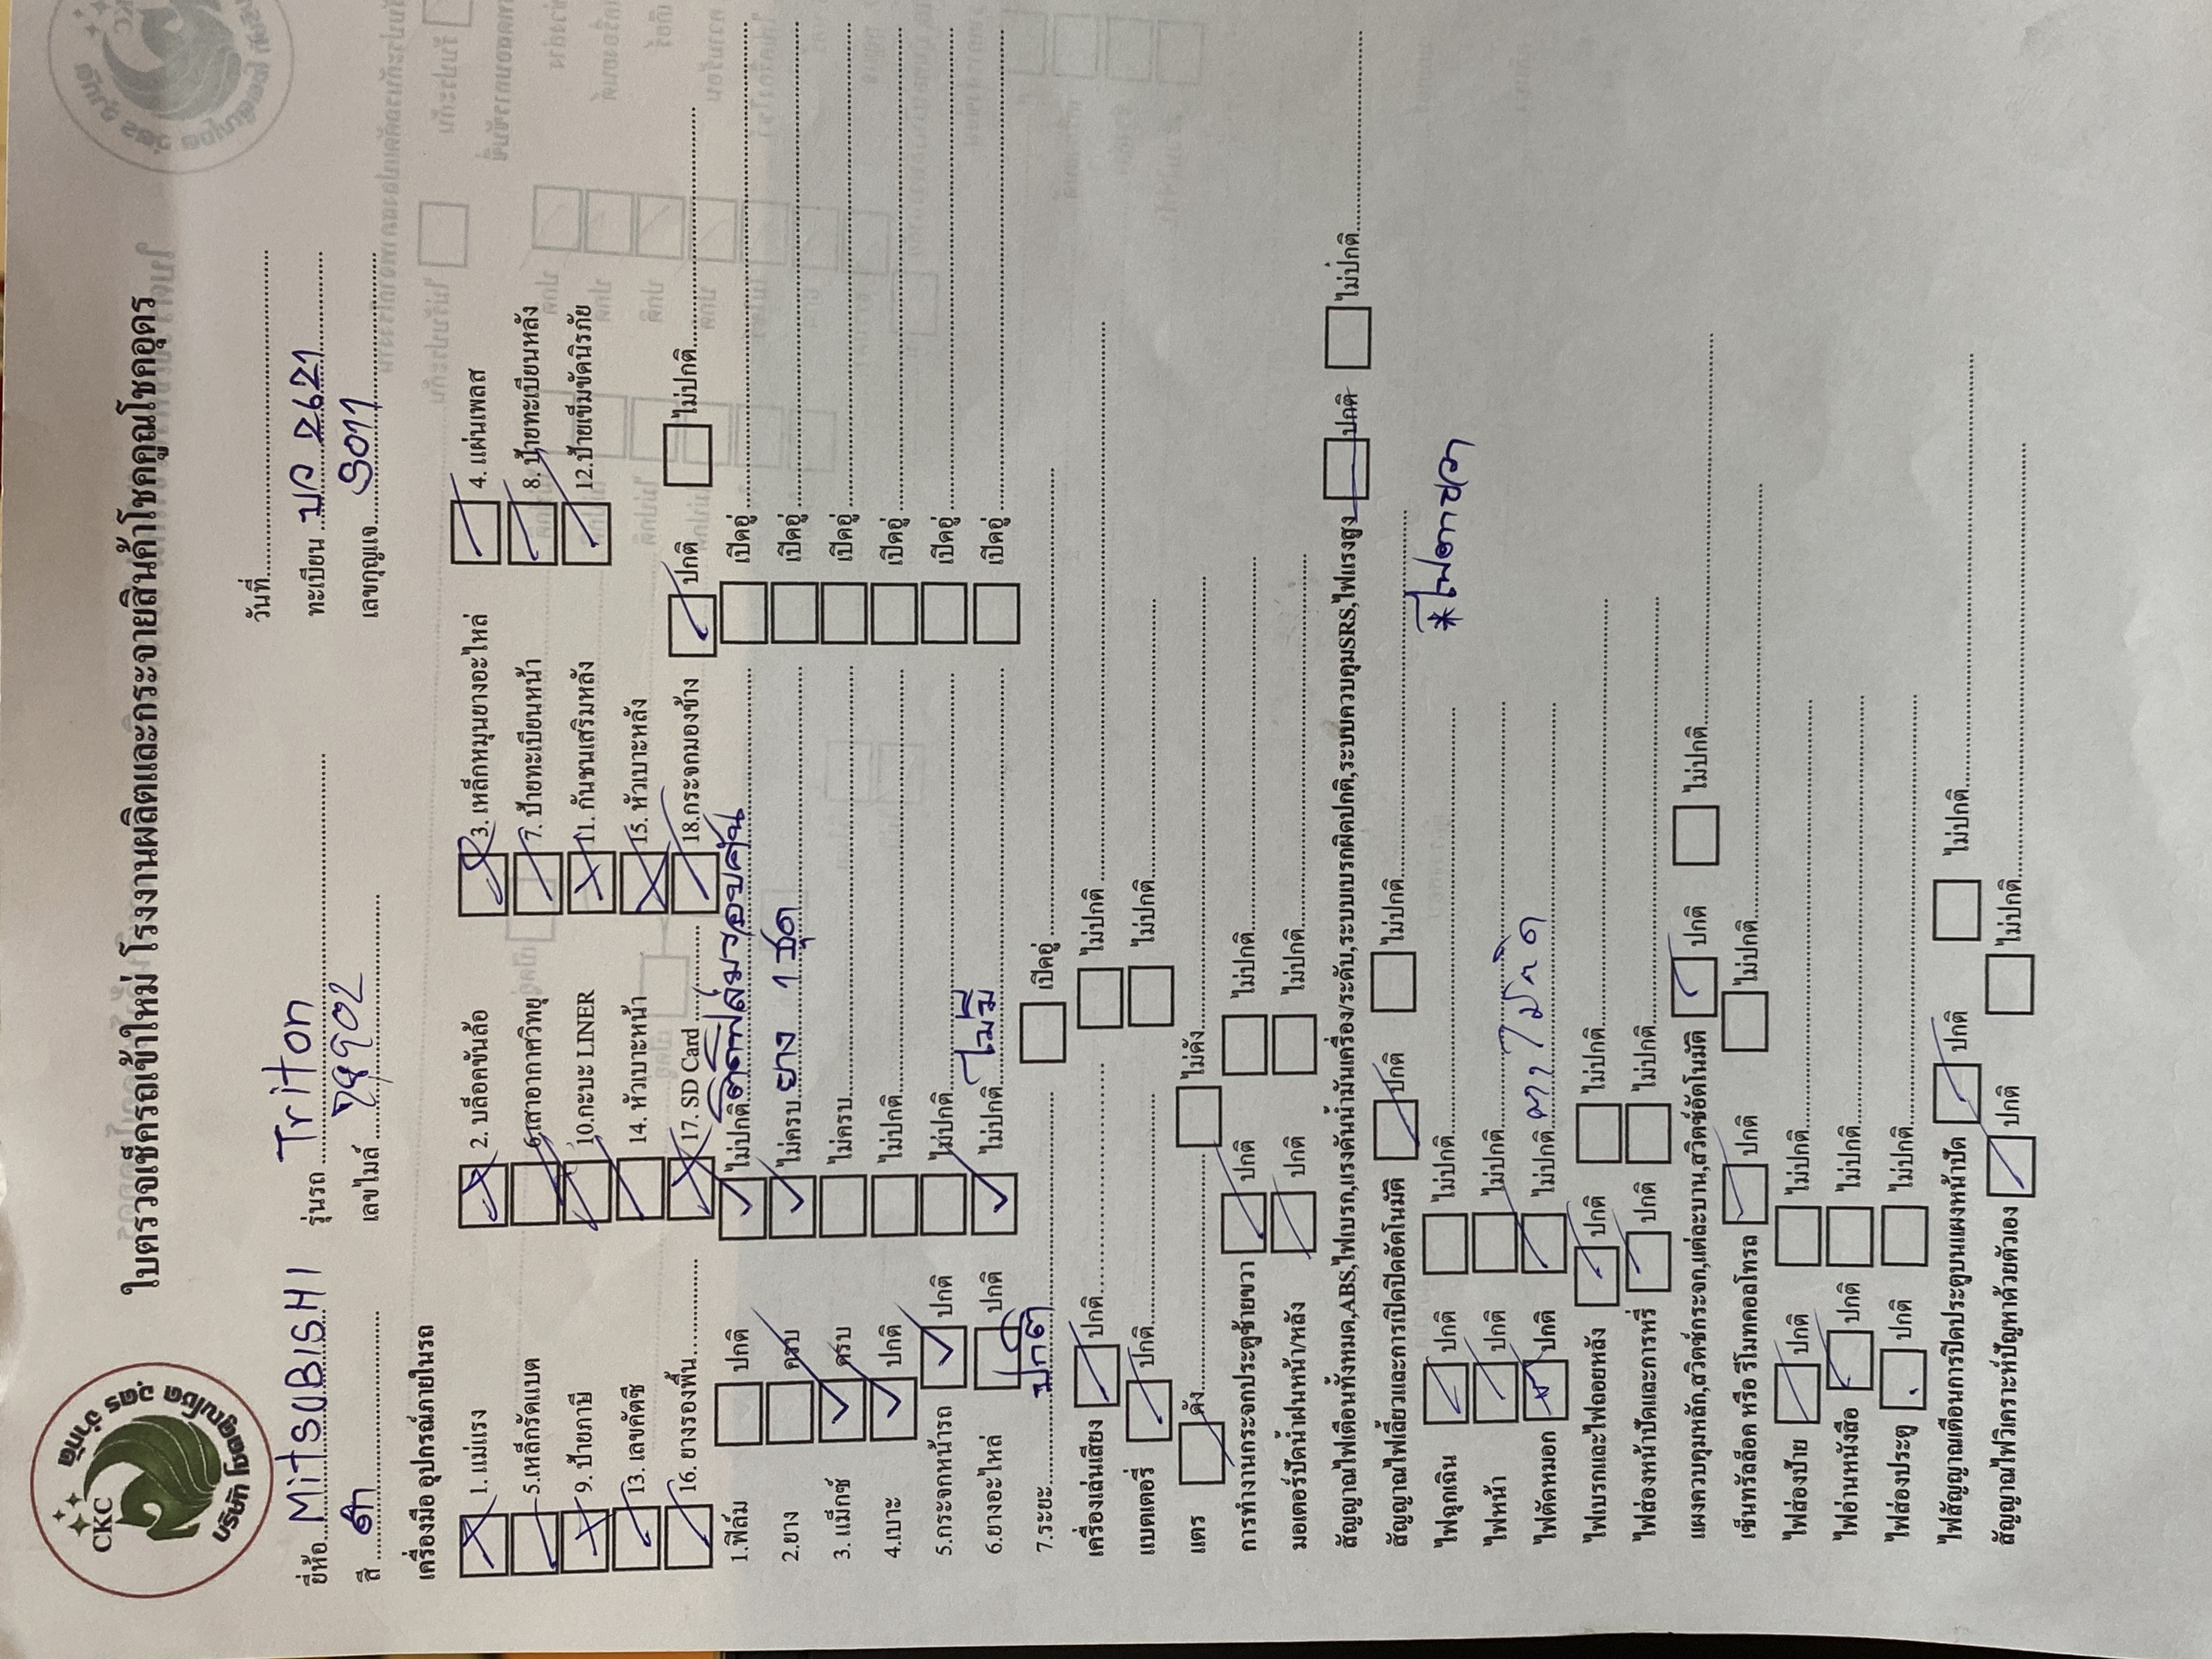 บริษัท โชคคูณโชค อุดร จำกัด
CKC
ใบตรวจเช็ครถเข้าใหม่ โรงงานผลิตและกระจายสินค้าโชคคูณโชคอุดร
วันที่
ยี่ห้อ MITSUBISHI รุ่นรถ Triton ทะเบียน บว 2621
สี ดำ เลขไมล์ เลขกุญแจ S011
เครื่องมือ อุปกรณ์ภายในรถ
1. แม่แรง 2. บล็อคขันล้อ 3. เหล็กหมุนยางอะไหล่ 4. แผ่นเพลส
5.เหล็กรัดแบต 6.เสาอากาศวิทยุ 7. ป้ายทะเบียนหน้า 8. ป้ายทะเบียนหลัง
9. ป้ายภาษี 10.กะบะ LINER 11. กันชนเสริมหลัง 12.ป้ายเข็มขัดนิรภัย
13. เลขคัตซี 14. หัวเบาะหน้า 15. หัวเบาะหลัง
16. ยางรองพื้น 17. SD Card 18.กระจกมองข้าง ปกติ ไม่ปกติ
1.ฟิล์ม ปกติ ไม่ปกติ ติดฟิล์มรอบคัน เปิดอู่
2.ยาง ครบ ไม่ครบ ยาง 1 ชุด เปิดอู่
3. แม็กซ์ ครบ ไม่ครบ เปิดอู่
4.เบาะ ปกติ ไม่ปกติ เปิดอู่
5.กระจกหน้ารถ ปกติ ไม่ปกติ เปิดอู่
6.ยางอะไหล่ ปกติ ไม่ปกติ ไม่มี เปิดอู่
7.ระยะ ปกติ เปิดอู่
เครื่องเล่นเสียง ปกติ ไม่ปกติ
แบตเตอรี่ ปกติ ไม่ปกติ
แตร ดัง ไม่ดัง
การทำงานกระจกประตูซ้ายขวา ปกติ ไม่ปกติ
มอเตอร์ปัดน้ำฝนหน้า/หลัง ปกติ ไม่ปกติ
สัญญาณไฟเตือนทั้งหมด,ABS,ไฟเบรก,แรงดันน้ำมันเครื่อง/ระดับ,ระบบเบรกผิดปกติ,ระบบควบคุมSRS,ไฟแรงสูง ปกติ ไม่ปกติ
สัญญาณไฟเลี้ยวและการเปิดปิดอัตโนมัติ ปกติ ไม่ปกติ
ไฟฉุกเฉิน ปกติ ไม่ปกติ
ไฟหน้า ปกติ ไม่ปกติ
ไฟตัดหมอก ปกติ ไม่ปกติ
ไฟเบรกและไฟถอยหลัง ปกติ ไม่ปกติ
ไฟส่องหน้าปัดและการหรี่ ปกติ ไม่ปกติ
แผงควบคุมหลัก,สวิตช์กระจก,แต่ละบาน,สวิตช์อัตโนมัติ ปกติ ไม่ปกติ
เซ็นทรัลล็อค หรือ รีโมทคอลโทรล ปกติ ไม่ปกติ
ไฟส่องป้าย ปกติ ไม่ปกติ
ไฟอ่านหนังสือ ปกติ ไม่ปกติ
ไฟส่องประตู ปกติ ไม่ปกติ
ไฟสัญญาณเตือนการปิดประตูบนแผงหน้าปัด ปกติ ไม่ปกติ
สัญญาณไฟวิเคราะห์ปัญหาด้วยตัวเอง ปกติ ไม่ปกติ